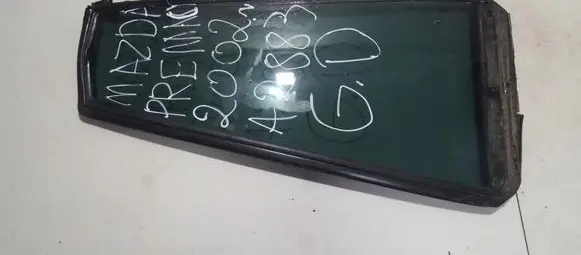 MAZDA
PREMACY
2002
A2883
G.D